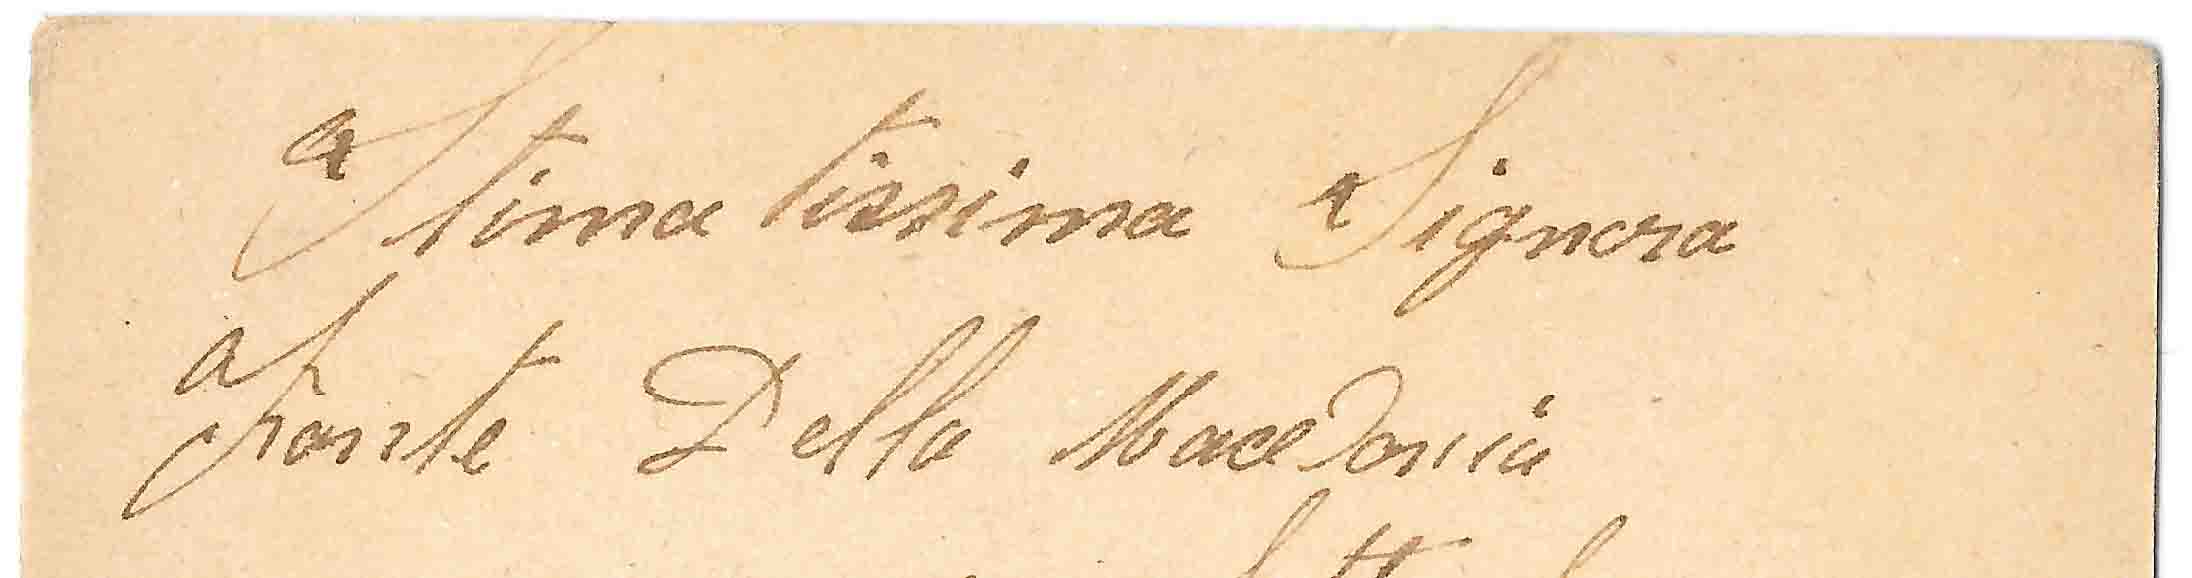 Stima tissima Signora
Fronte Della Macedonia